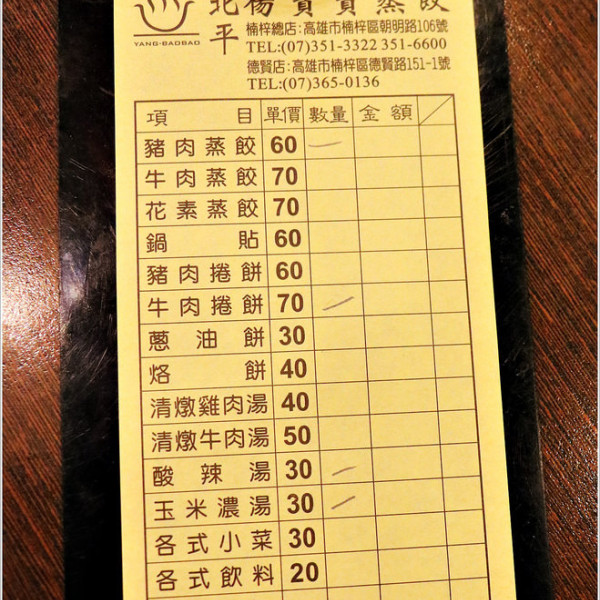 北楊寶寶蒸餃
平
楠梓總店:高雄市楠梓區朝明路106號
TEL:(07)351-3322 351-6600
德賢店:高雄市楠梓區德賢路151-1號
TEL:(07)365-0136
YANG-BAOBAO
項目 單價 數量 金額
豬肉蒸餃 60
牛肉蒸餃 70
花素蒸餃 70
鍋貼 60
豬肉捲餅 60
牛肉捲餅 70
蔥油餅 30
烙餅 40
清燉雞肉湯 40
清燉牛肉湯 50
酸辣湯 30
玉米濃湯 30
各式小菜 30
各式飲料 20